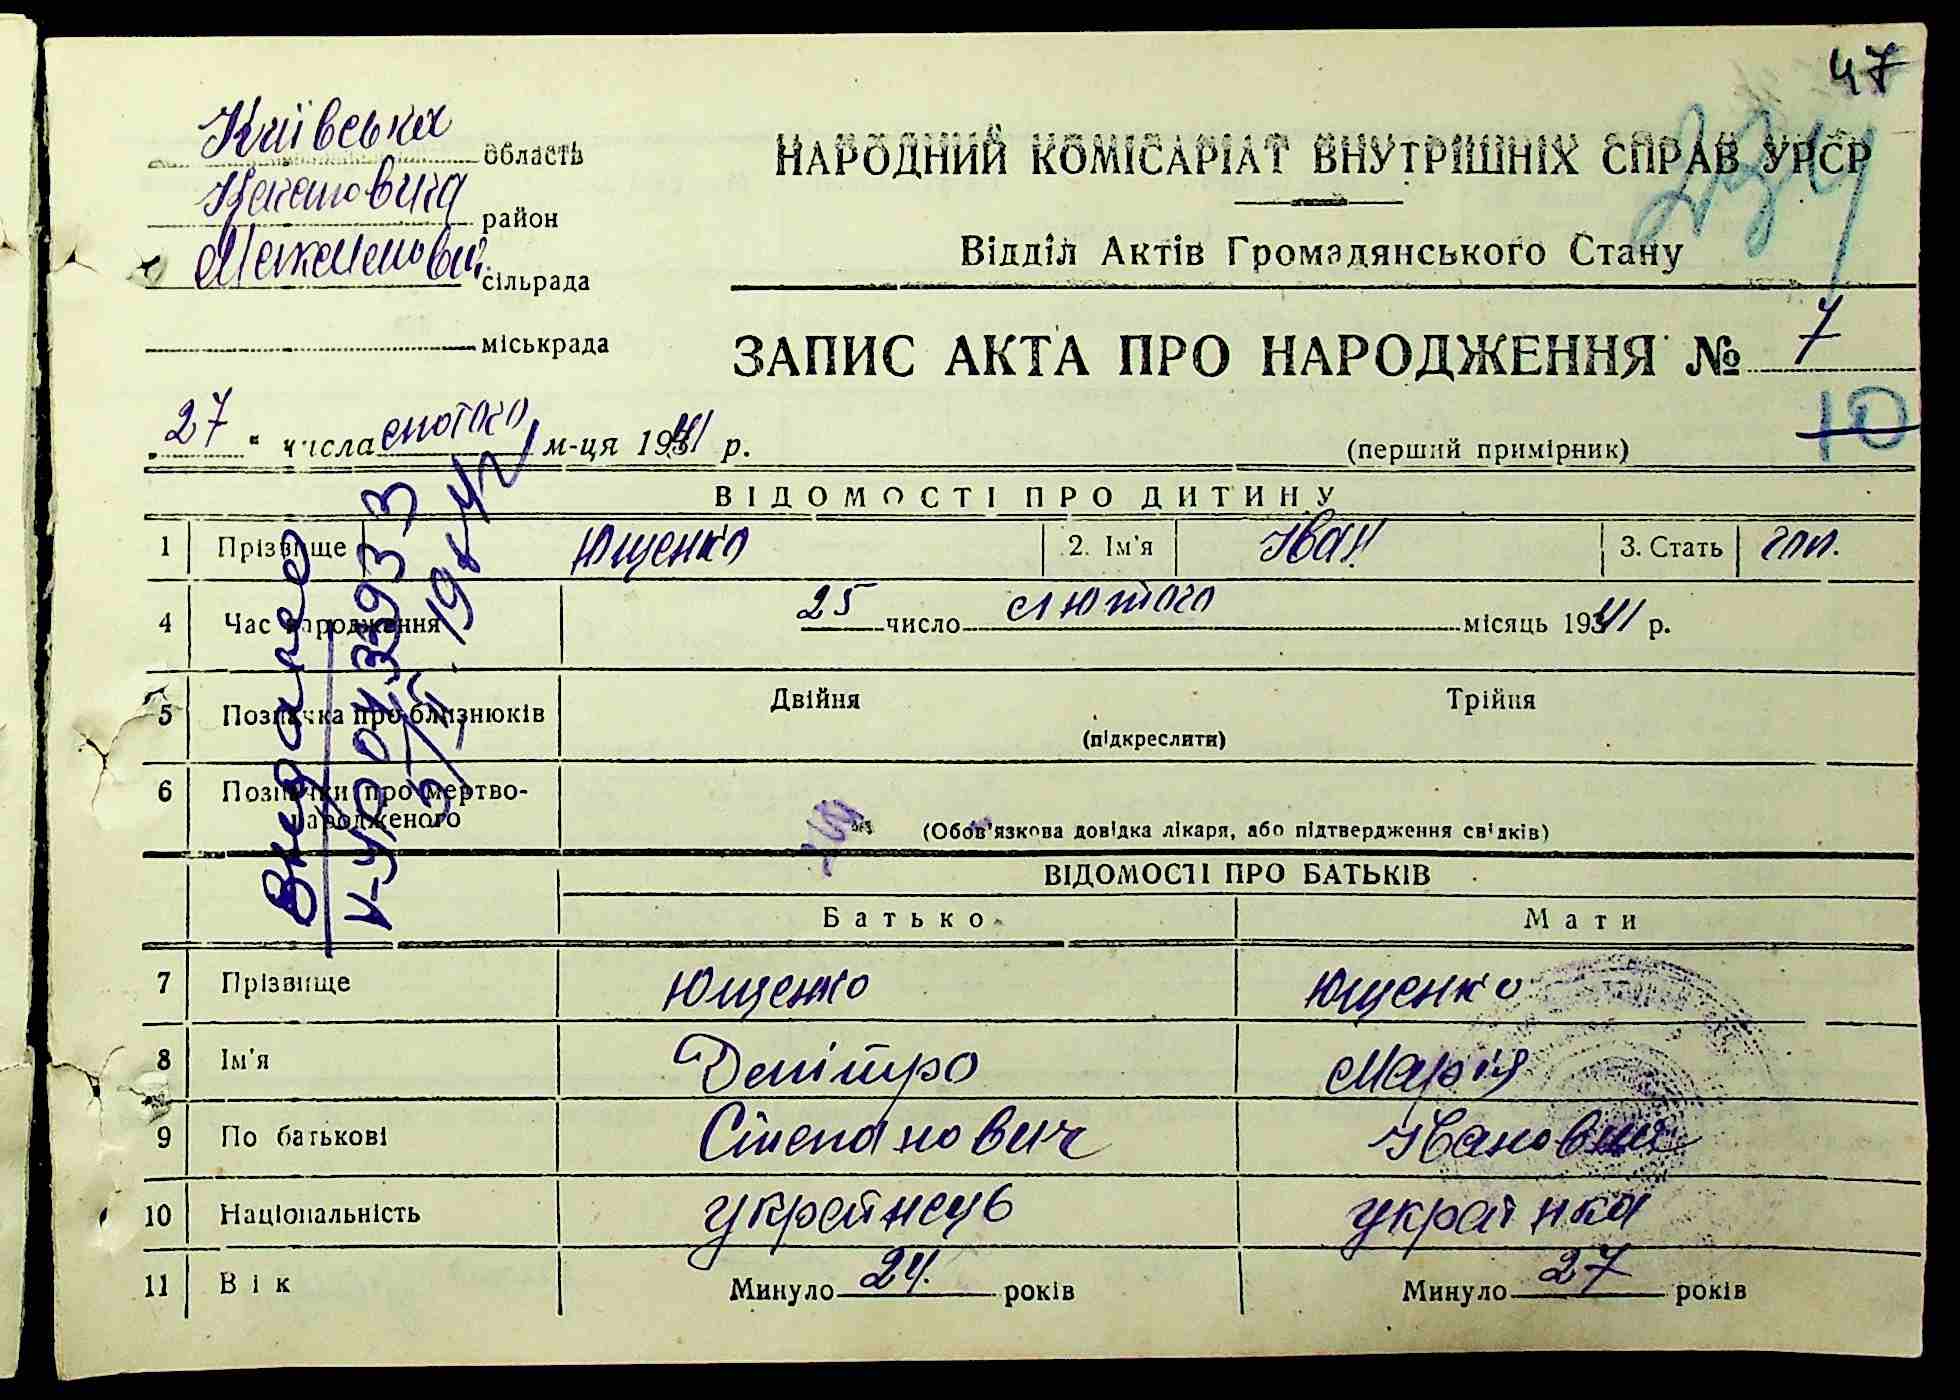 47
Київська область
район
сільрада
міськрада
НАРОДНИЙ КОМІСАРІАТ ВНУТРІШНІХ СПРАВ УРСР
Відділ Актів Громадянського Стану
ЗАПИС АКТА ПРО НАРОДЖЕННЯ № 7
10
27 " числа лютого м-ця 1941 р.
(перший примірник)
ВІДОМОСТІ ПРО ДИТИНУ
1 Прізвище Ющенко 2. Ім'я Іван 3. Стать чол.
4 Час народження 25 число лютого місяць 1941 р.
5 Позначка про близнюків Двійня Трійня
(підкреслити)
6 Позначки про мертво-
народженого
(Обов'язкова довідка лікаря, або підтвердження свідків)
ВІДОМОСТІ ПРО БАТЬКІВ
Батько Мати
7 Прізвище Ющенко Ющенко
8 Ім'я Дмітро Марія
9 По батькові Степанович Івановна
10 Національність українець українка
11 Вік Минуло 24 років Минуло 27 років